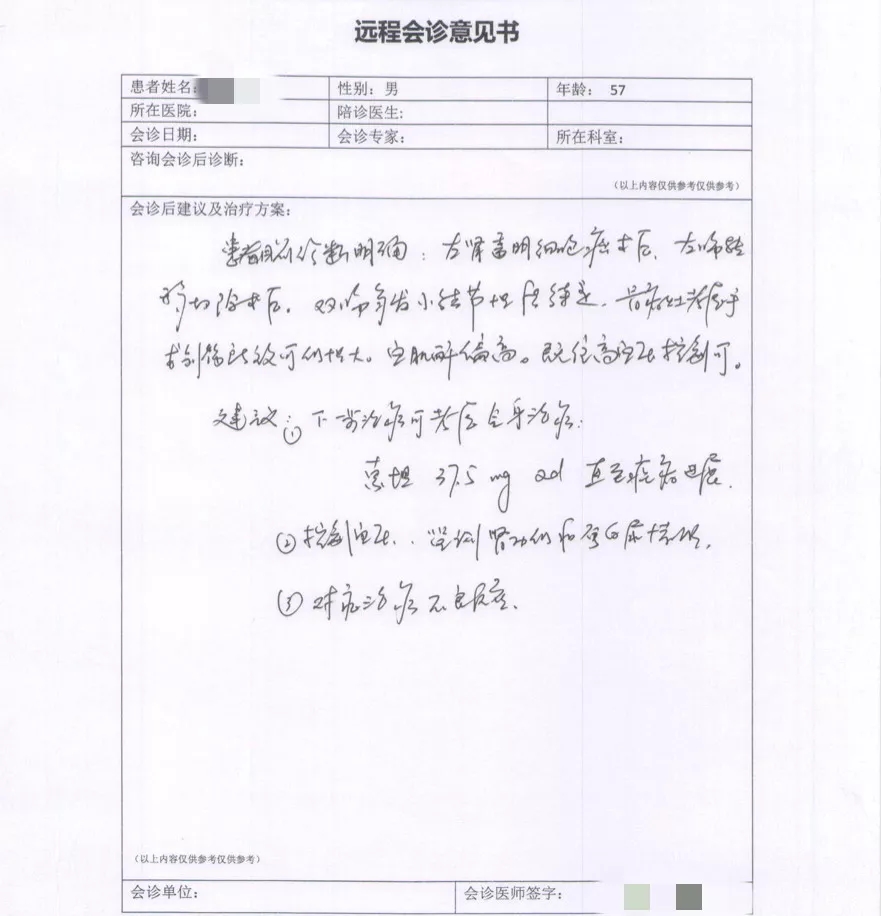 远程会诊意见书
患者姓名: 性别: 男 年龄: 57
所在医院: 陪诊医生:
会诊日期: 会诊专家: 所在科室:
咨询会诊后诊断:
（以上内容仅供参考仅供参考）
会诊后建议及治疗方案:
患者目前诊断明确：左肾透明细胞癌术后，左肺转
移切除术后，双肺多发小结节
可。血肌酐偏高。既往高血压控制可。
建议：① 下一步治疗可考虑全身治疗：
索坦 37.5 mg qd 直至疾病进展.
② 控制血压，监测肾功能和蛋白尿情况.
③ 对症治疗不良反应.
（以上内容仅供参考仅供参考）
会诊单位: 会诊医师签字: